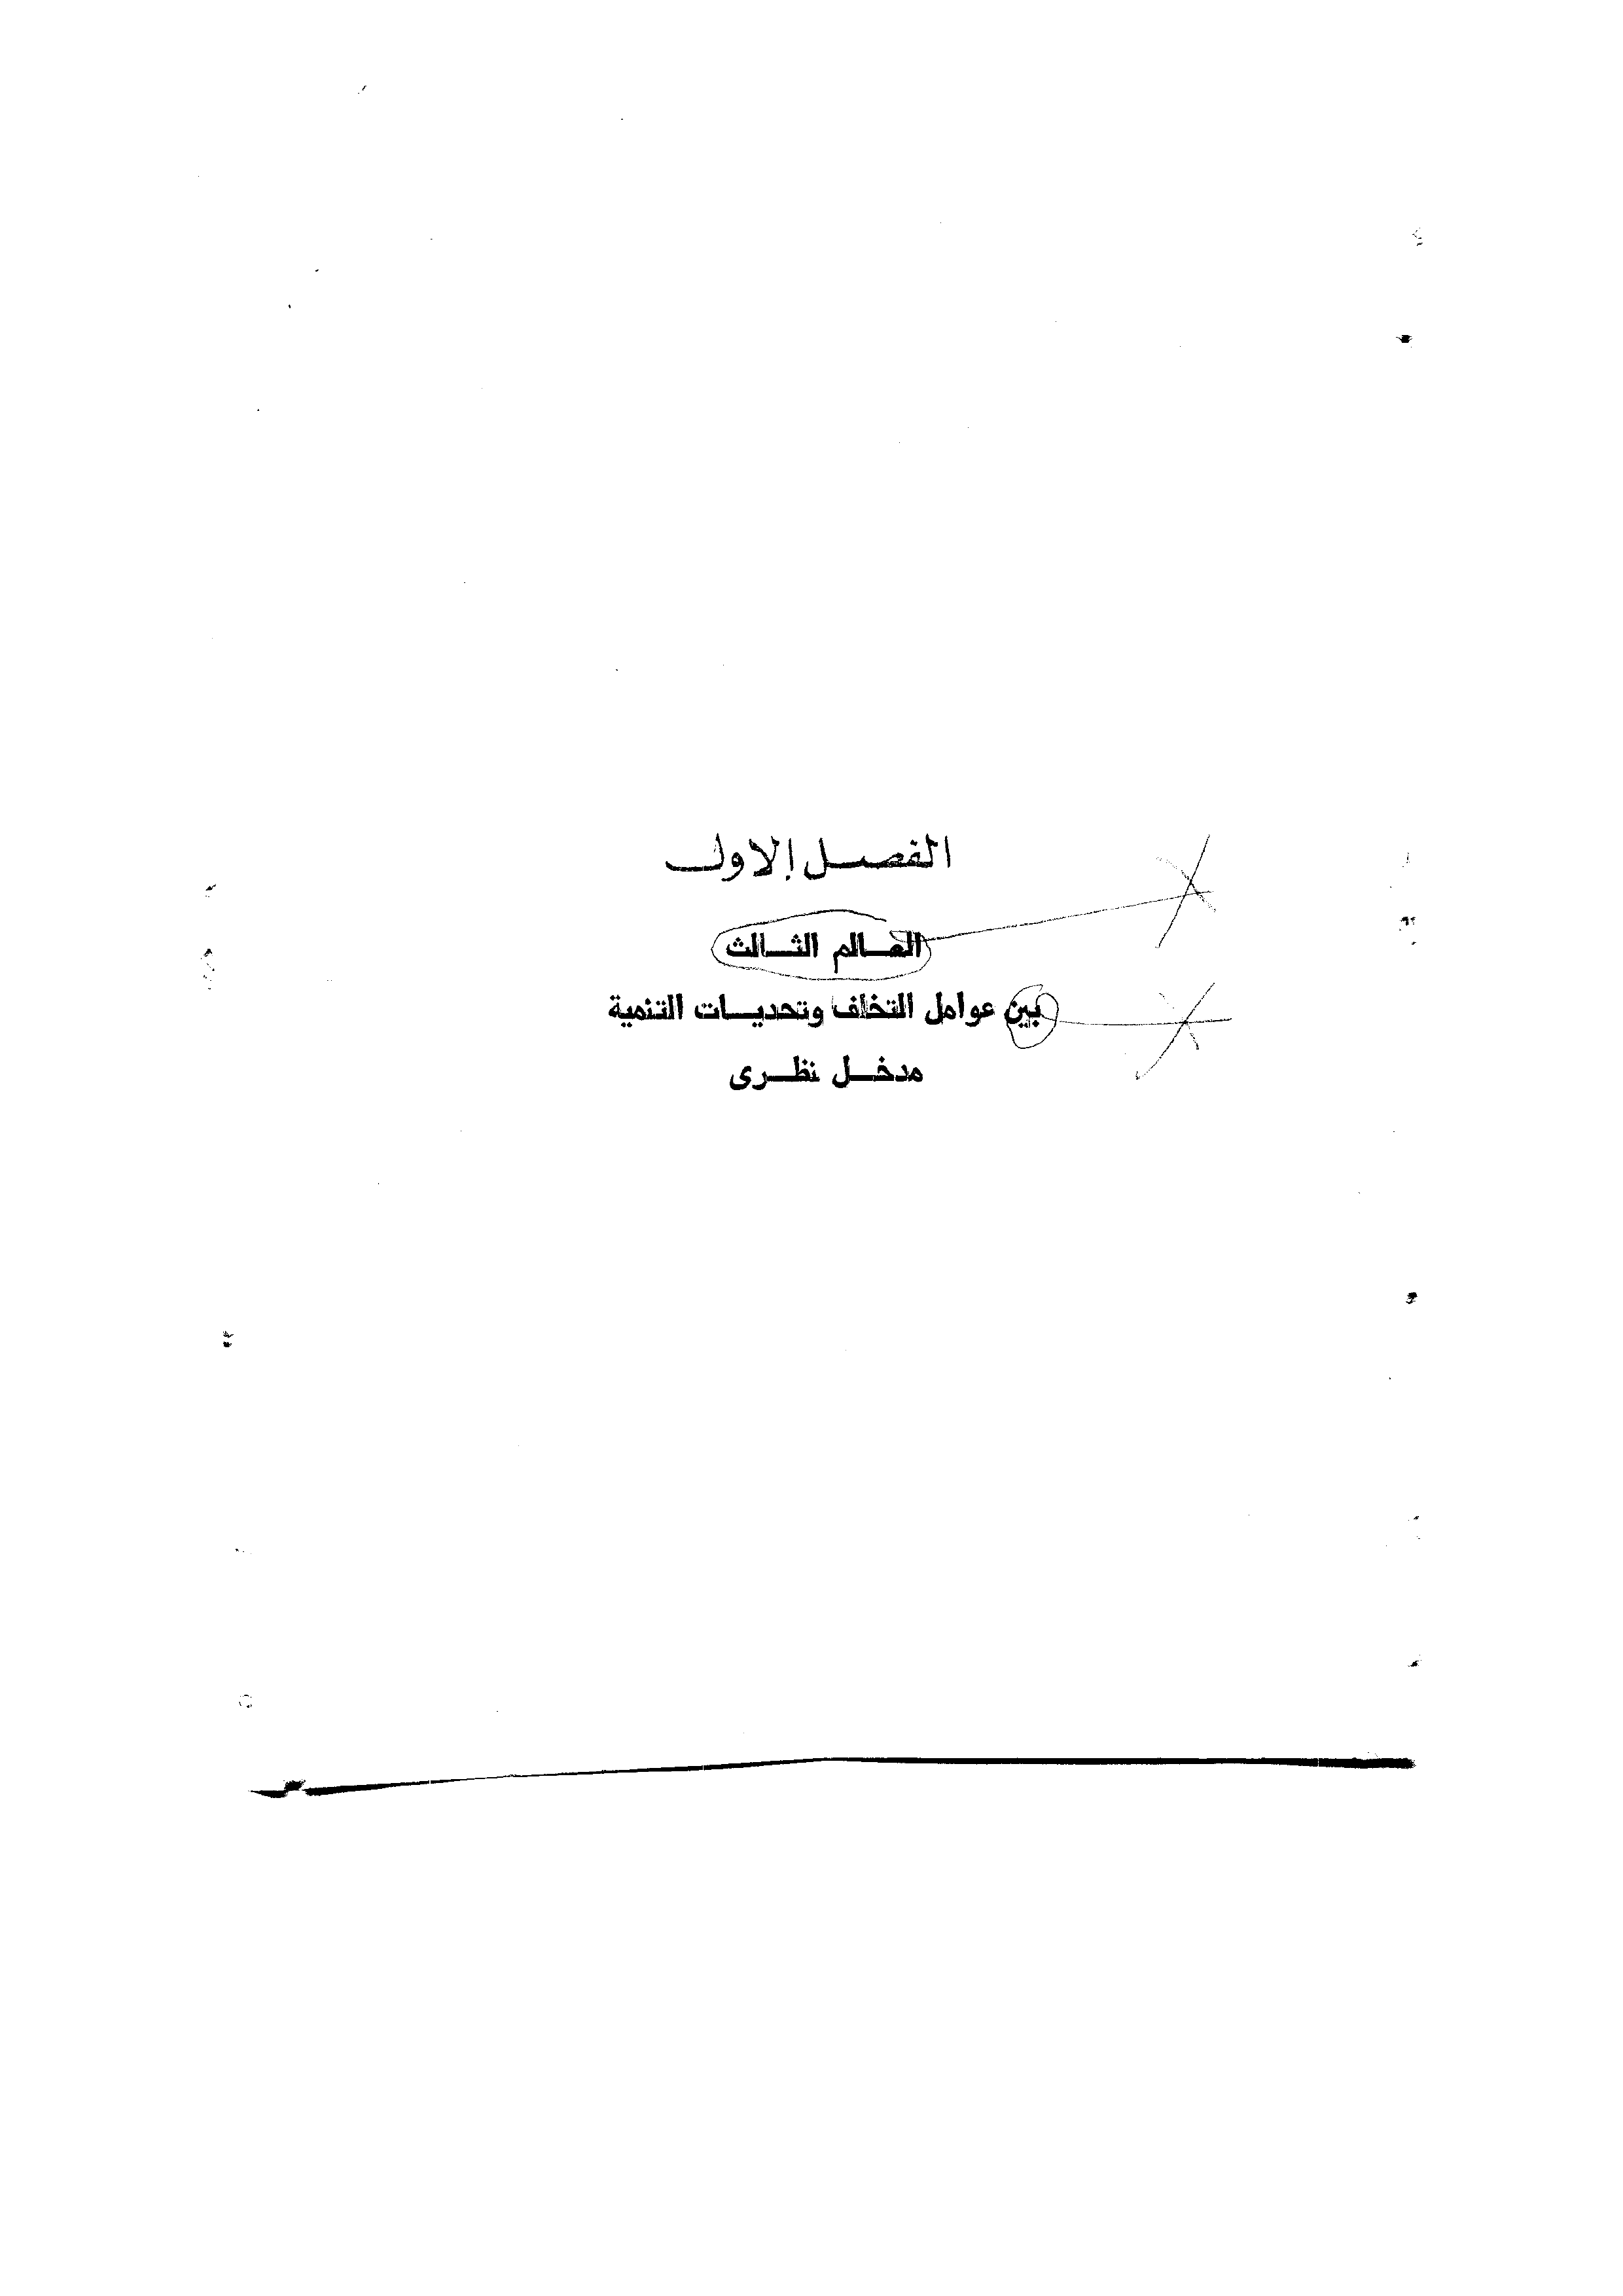 الفصل الاول
العالم الثالث
بين عوامل التخلف وتحديات التنمية
مدخل نظرى